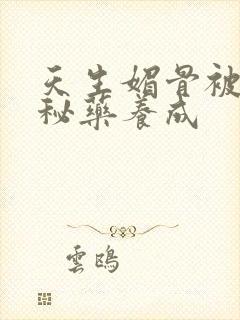 天生媚骨被
秘藥養成
雲鴟